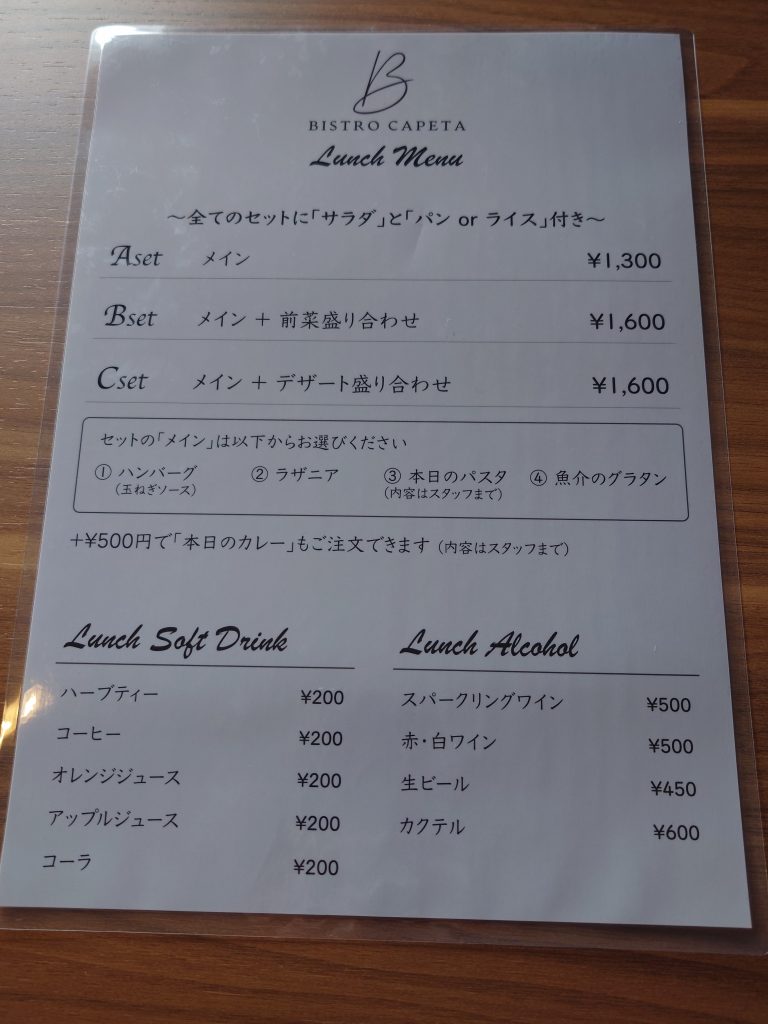 B
BISTRO CAPETA
Lunch Menu
～全てのセットに「サラダ」と「パン or ライス」付き～
Aset メイン ¥1,300
Bset メイン + 前菜盛り合わせ ¥1,600
Cset メイン + デザート盛り合わせ ¥1,600
セットの「メイン」は以下からお選びください
① ハンバーグ ② ラザニア ③ 本日のパスタ ④ 魚介のグラタン
(玉ねぎソース) (内容はスタッフまで)
+¥500円で「本日のカレー」もご注文できます (内容はスタッフまで)
Lunch Soft Drink
ハーブティー ¥200
コーヒー ¥200
オレンジジュース ¥200
アップルジュース ¥200
コーラ ¥200
Lunch Alcohol
スパークリングワイン ¥500
赤・白ワイン ¥500
生ビール ¥450
カクテル ¥600